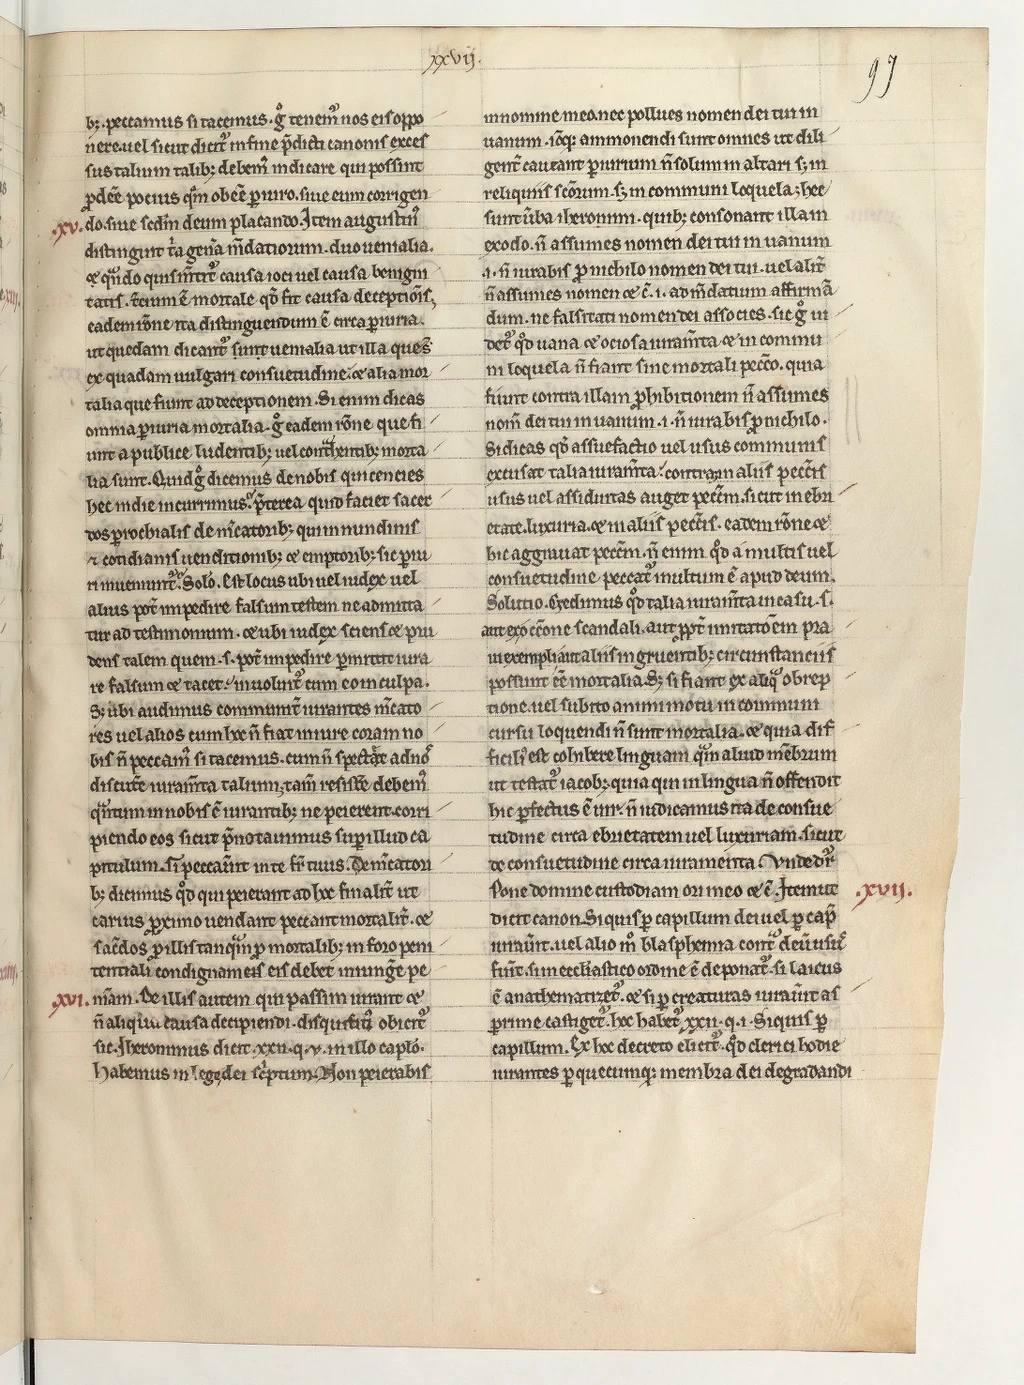 xxvij.
97
bꝫ. peccamus si tacemus. gͦ tenemꝰ nos eis oppo
nere. uel sicut dicitᷣ in fine p̄dicti canonis exces
sus talium talibꝫ debemꝰ indicare qui possint
ꝓdeē pocius qͣm obeē ꝑiuro. siue eum corrigen
.xv. do. siue sedm̄ deum placando. Item augustinꝰ
distinguit tͥa genͣa m̄datiorum. duo uenialia.
⁊ qn̄do quis m̄titᷣ causa ioci uel causa benigni
tatis. tͨium ē mortale qd̓ fit causa deceptiōis,
eadem rōne ita distinguendum ē circa ꝑiuria.
ut quedam dicantᷣ sint uenialia ut illa que sͭ
ex quadam uulgari consuetudine. ⁊ alia mor
talia que fiunt ad deceptionem. Si enim dicas
omnia ꝑiuria mortalia. gͦ eadem rōne que fi
unt a publice ludentibꝫ uel conͭhentibꝫ morta
lia sunt. Quid gͦ dicemus de nobis qui cencies
hec in die incurrimus. p̄terea quid faciet sacer
dos parochialis de m̄catoribꝫ qui in nundinis
⁊ cotidianis uenditionibꝫ ⁊ emptoribꝫ sic ꝑiu
ri inueniuntᷣ. Solō. Est locus ubi uel iudex uel
alius potͭ impedire falsum testem ne admitta
tur ad testimonium. ⁊ ubi iudex sciens ⁊ pru
dens talem quem .s. potͭ impedire ꝑmittit iura
re falsum ⁊ tacet. inuoluitᷣ cum eo in culpa.
Sꝫ ubi audimus communitͭ iurantes m̄cato
res uel alios cum hoc n̄ fiat in iure coram no
bis n̄ peccamꝰ si tacemus. cum n̄ spectet ad nos
discutͤe iuram̄ta talium, tam̄ resistͤe debemꝰ
qͣntum in nobis ē iurantibꝫ ne peierent. corri
piendo eos sicut p̄notauimus suꝑ illud ca
pitulum. si peccaũit in te frͭ tuus. De m̄catori
bꝫ dicimus qd̓ qui peierant ad hoc finalitͭ ut
carius ꝓximo uendant peccant mortalitͭ. ⁊
sac̄dos ꝑ illis tanqͣm ꝓ mortalibꝫ in foro peni
tentiali condignam eis debet iniungͤe pe
.xvi. niam. De illis autem qui passim iurant ⁊
n̄ aliqͣ causa decipiendi. disquisitiꝰ obicitᷣ
sic. Iheronimus dicit .xxii. q. v. in illo caplō.
habemus in lege dei sc̄ptum. Non peierabis
in nomine meo. nec pollues nomen dei tui in
uanum. iō qꝫ ammonendi sunt omnes ut dili
gentͭ caueant ꝑiurium n̄ solum in altari sꝫ in
reliquiis sc̄orum. sꝫ in communi loquela. hec
sunt ũba iheronimi. quibꝫ consonant illa in
exodo. n̄ assumes nomen dei tui in uanum
.i. n̄ iurabis ꝓ nichilo nomen dei tui. uel alitͭ
n̄ assumes nomen ⁊ c̄. .i. ad m̄datium affirmā
dum. ne falsitati nomen dei associes. sic gͦ ui
detᷣ qd̓ uana ⁊ ociosa iuram̄ta ⁊ in commu
ni loquela n̄ fiant sine mortali pecc̄o. quia
fiunt contra illam ꝓhibitionem n̄ assumes
nom̄ dei tui in uanum .i. n̄ iurabis ꝓ nichilo.
Si dicas qd̓ assuefactio uel usus communis
excusat talia iuram̄ta. contra. in aliis pecc̄is
usus uel assiduitas auget pecc̄m. sicut in ebri
etate. luxuria. ⁊ in aliis pecc̄is. eadem rōne ⁊
hic aggrauat pecc̄m. n̄ enim qd̓ a multis uel
consuetudine peccatᷣ inultum ē apud deum.
Solutio. Credimus qd̓ talia iuram̄ta in casu .s.
aut ex occ̄one scandali. aut ꝓpt imitatōem pra
ui exempli aut aliis ingruentibꝫ circumstanciis
possunt eē mortalia. Sꝫ si fiant ex aliqͣ obrep
tione. uel subito animi motu in communi
cursu loquendi n̄ sunt mortalia. ⁊ quia dif
ficilͥ est cohibere linguam qͣm aliud mēbrum
ut testatᷣ iacobꝫ quia qui in lingua n̄ offendit
hic ꝑfectus ē uir. n̄ iudicamus ita de consue
tudine circa ebrietatem uel luxuriam. sicut
de consuetudine circa iuramenta. Vnde dr̄
Pone domine custodiam ori meo ⁊ c̄. Item ut .xvii.
dicit canon. Siquis ꝑ capillum dei uel ꝑ capͭ
iuraũit. uel alio mͦ blasphemia contͣ deū usus
fuit. si in ecclīastico ordine ē deponatᷣ. si laicus
ē anathematizetᷣ. ⁊ si ꝑ creaturas iuraũit as
perrime castigetᷣ. hoc habetᷣ .xxii. q. i. Siquis ꝑ
capillum. Ex hoc decreto elicitᷣ qd̓ clerici hodie
iurantes ꝑ quecumqꝫ membra dei degradandi